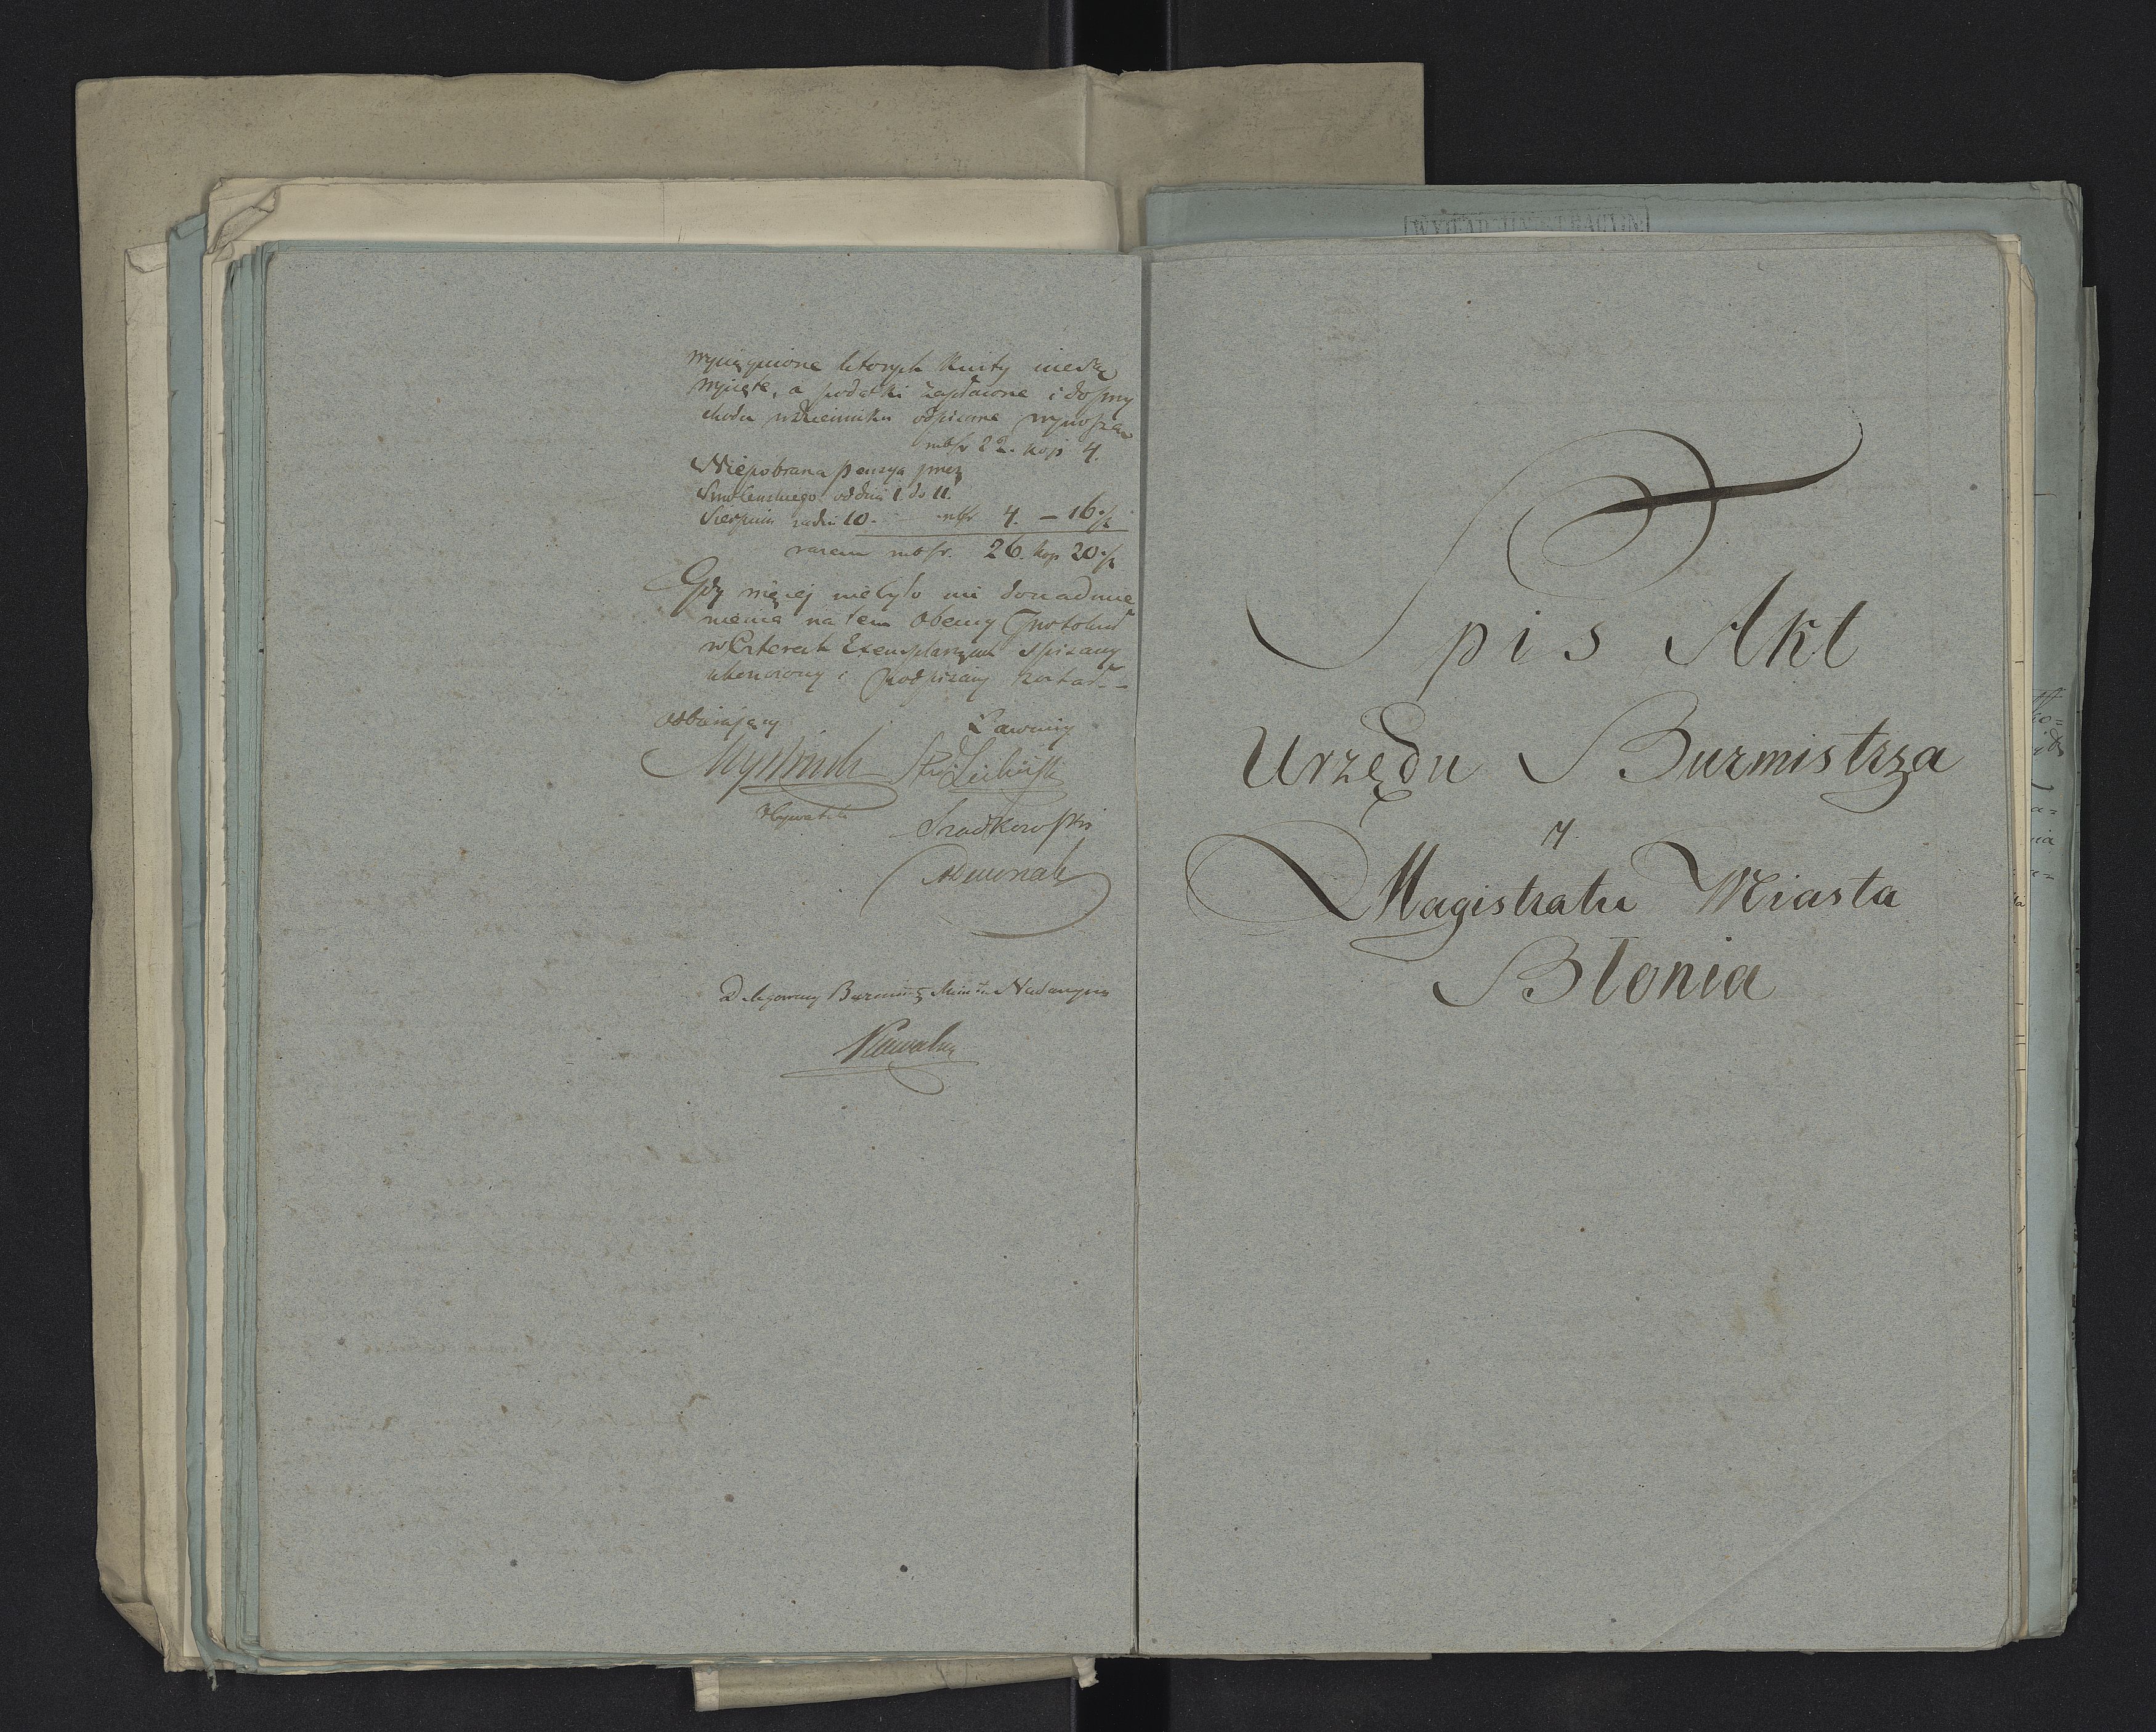 wyciągnione których Kwity niesą
wyjęte, a podatki zapłacone i do przy
chodu w dzienniku odpisane wynoszą
rubsr 22. kop 4.
Niepobrana pensya przez
Smoleńskiego od dnia 1. do 11.
Sierpnia za dni 10. rubsr 4. – 16 ½
razem rubsr. 26. kop 20 ½
Gdy więcej niebyło nic do nadmie
nienia na tem obecny Protokuł
w Czterech Exemplarzach spisany
ukończony i Podpisany został. –
Odbierający
Ławnicy
Szadkowski
Delegowany Burmistrz Miasta Nadarzyna
Kowalski
Spis Akt
Urzędu Burmistrza
y
Magistratu Miasta
Błonia